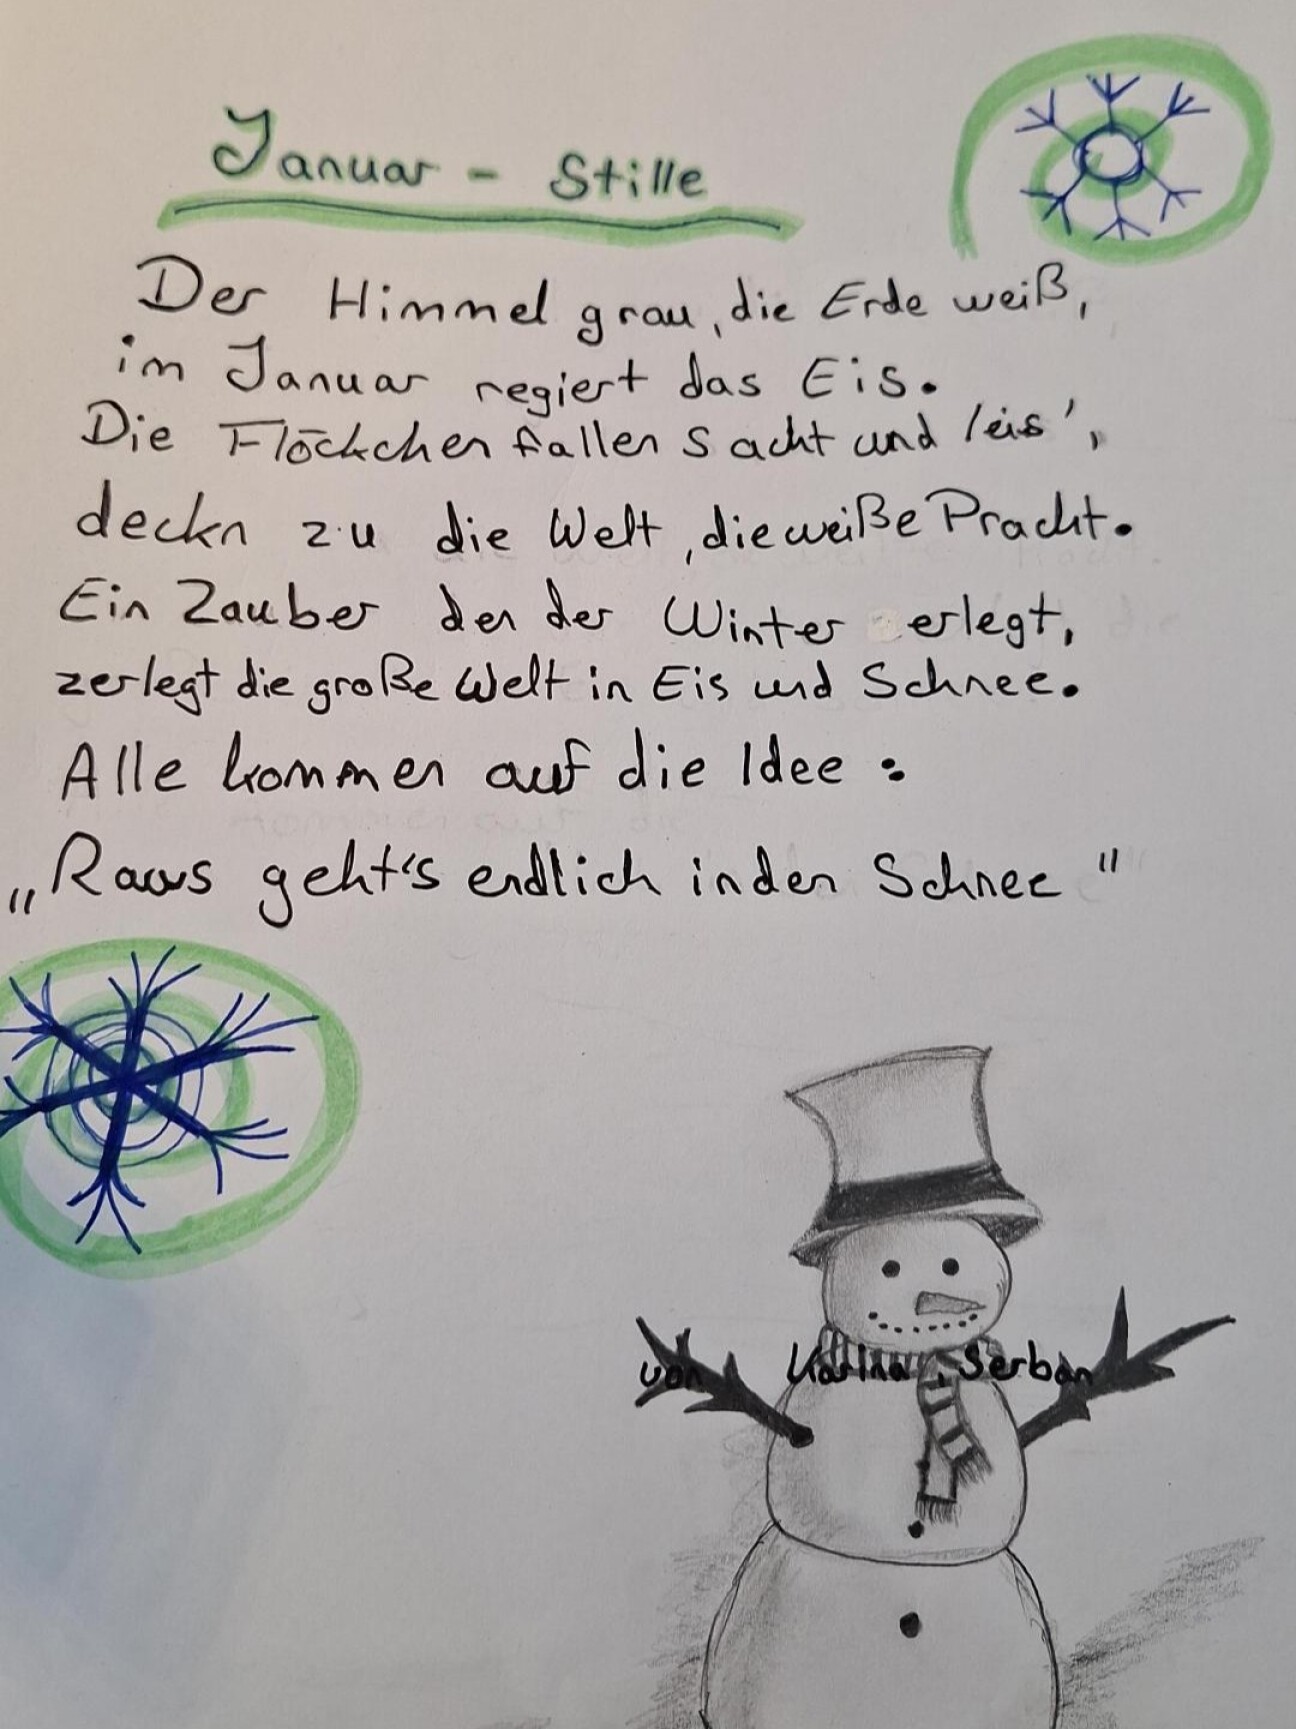 Januar - Stille
Der Himmel grau, die Erde weiß,
im Januar regiert das Eis.
Die Flöckchen fallen sacht und leis',
deckn zu die Welt, die weiße Pracht.
Ein Zauber den der Winter erlegt,
zerlegt die große Welt in Eis und Schnee.
Alle kommen auf die Idee:
„Raus geht's endlich in den Schnee"
von Karina, Serban